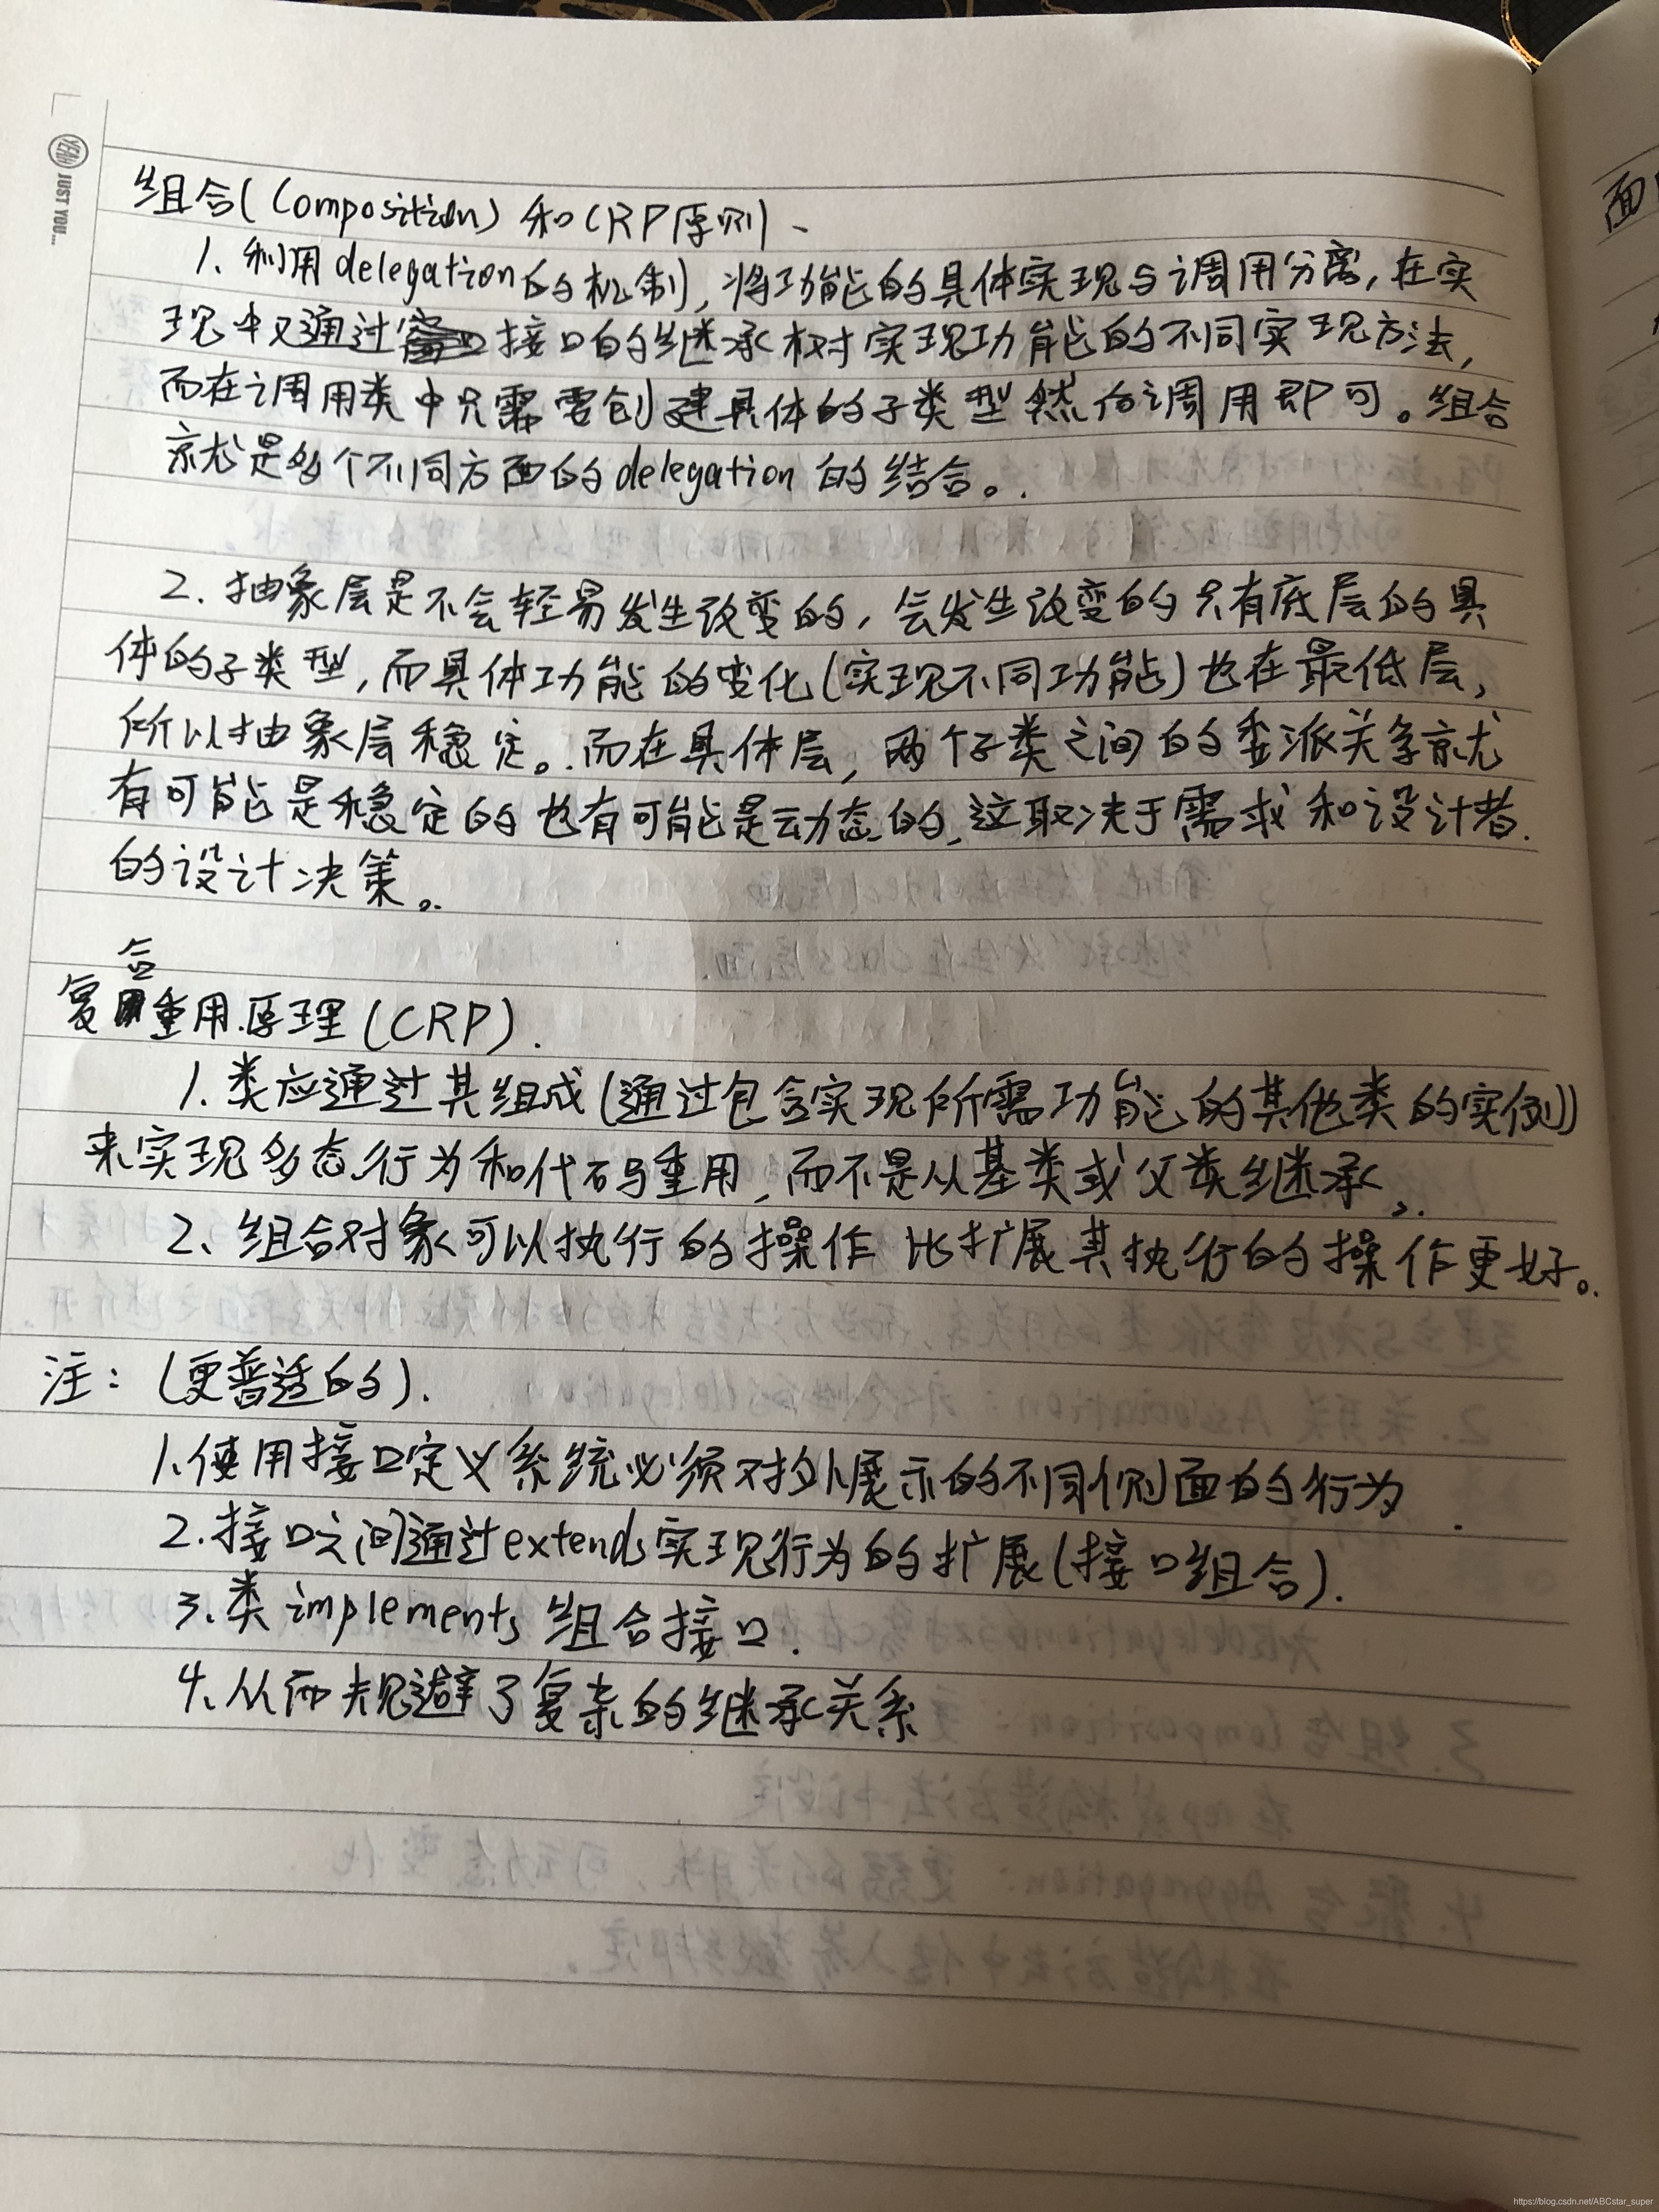 YEAH JUST YOU...
组合(Composition)和CRP原则、
1、利用delegation的机制,将功能的具体实现与调用分离,在实
现中又通过接口的继承树实现功能的不同实现方法,
而在调用类中只需要创建具体的子类型然后调用即可。组合
就是多个不同方面的delegation的结合。
2.抽象层是不会轻易发生改变的,会发生改变的只有底层的具
体的子类型,而具体功能的变化(实现不同功能)也在最低层,
所以抽象层稳定。而在具体层,两个子类之间的委派关系就
有可能是稳定的也有可能是动态的,这取决于需求和设计者
的设计决策。
复合重用原理(CRP).
1.类应通过其组成(通过包含实现所需功能的其他类的实例)
来实现多态行为和代码重用,而不是从基类或父类继承。
2、组合对象可以执行的操作比扩展其执行的操作更好。
注:(更普适的).
1.使用接口定义系统必须对外展示的不同侧面的行为
2.接口之间通过extends实现行为的扩展(接口组合).
3.类implements组合接口.
4.从而规避了复杂的继承关系
面
https://blog.csdn.net/ABCstar_super